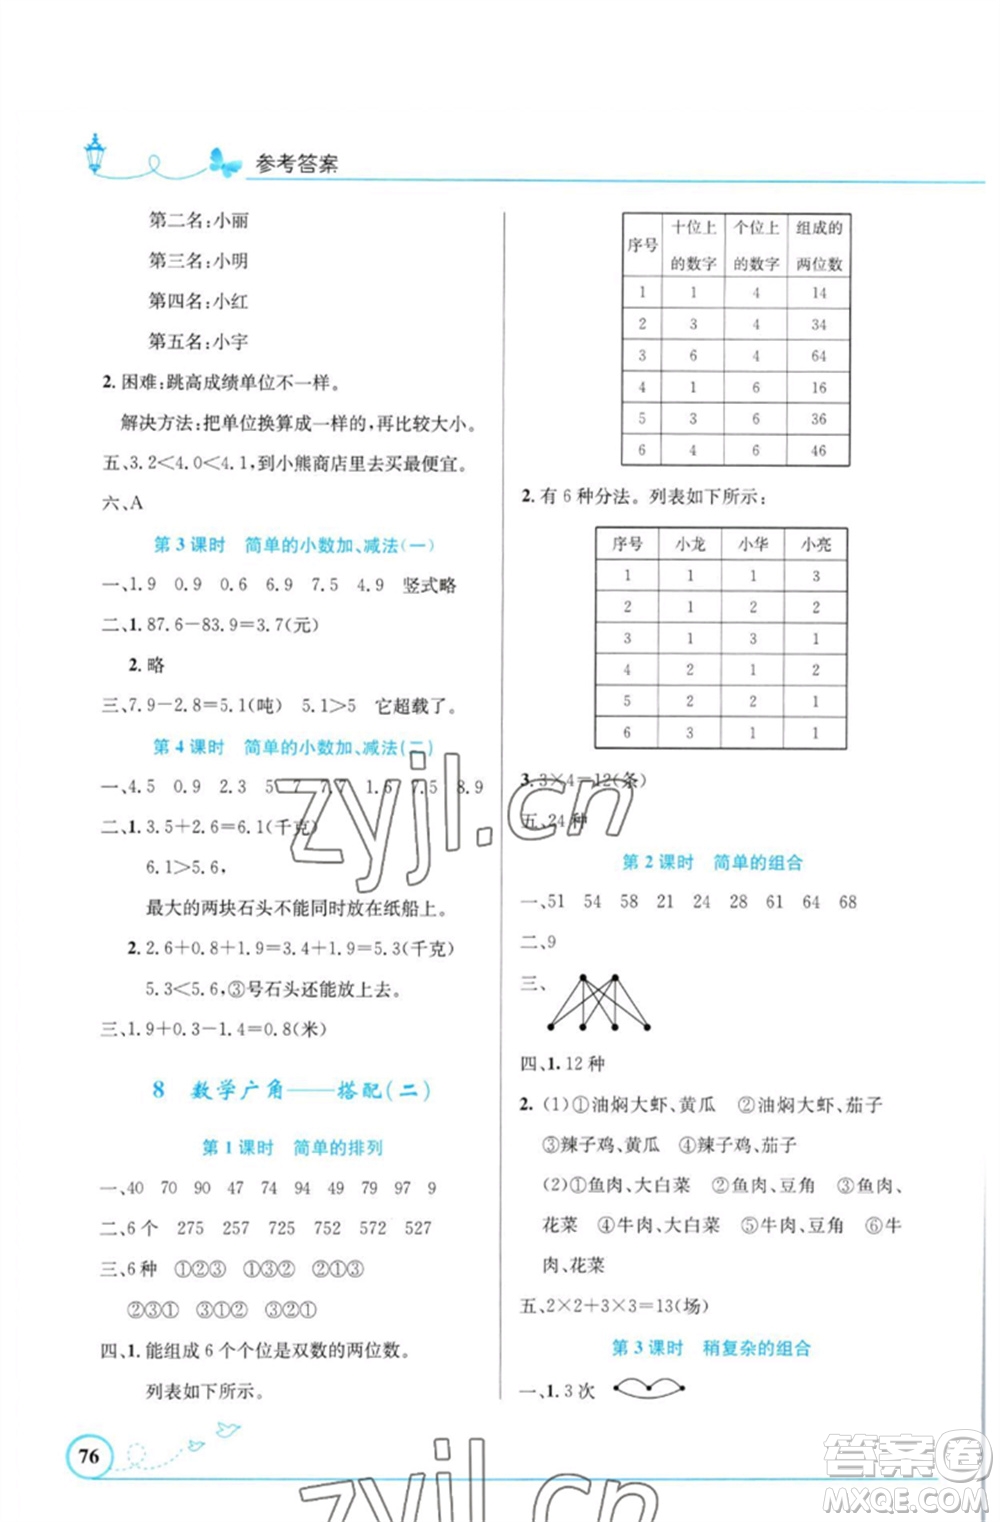 参考答案
第二名:小丽
第三名:小明
第四名:小红
第五名:小宇
2.困难:跳高成绩单位不一样。
解决方法:把单位换算成一样的,再比较大小。
五、3.2<4.0<4.1,到小熊商店里去买最便宜。
六、A
第3课时 简单的小数加、减法(一)
一、1.9 0.9 0.6 6.9 7.5 4.9 竖式略
二、1. 87.6-83.9=3.7(元)
2.略
三、7.9-2.8=5.1(吨) 5.1>5 它超载了。
第4课时 简单的小数加、减法(二)
一、4.5 0.9 2.3 5 7 7.7 1.6 7.5 8.9
二、1. 3.5+2.6=6.1(千克)
6.1>5.6,
最大的两块石头不能同时放在纸船上。
2. 2.6+0.8+1.9=3.4+1.9=5.3(千克)
5.3<5.6,③号石头还能放上去。
三、1.9+0.3-1.4=0.8(米)
8 数学广角——搭配(二)
第1课时 简单的排列
一、40 70 90 47 49 74 79 94 97 9
二、6个 275 257 725 752 572 527
三、6种 ①②③ ①③② ②①③
②③① ③①② ③②①
四、1.能组成6个个位是双数的两位数。
列表如下所示。
序号 十位上的数字 个位上的数字 组成的两位数
1 1 4 14
2 3 4 34
3 6 4 64
4 1 6 16
5 3 6 36
6 4 6 46
2.有6种分法。列表如下所示:
序号 小龙 小华 小亮
1 1 1 3
2 1 2 2
3 1 3 1
4 2 2 1
5 2 1 2
6 3 1 1
3. 3×4=12(条)
五、24种
第2课时 简单的组合
一、51 54 58 21 24 28 61 64 68
二、9
三、
四、1. 12种
2.(1)①油焖大虾、黄瓜 ②油焖大虾、茄子
③辣子鸡、黄瓜 ④辣子鸡、茄子
(2)①鱼肉、大白菜 ②鱼肉、豆角 ③鱼肉、
花菜 ④牛肉、大白菜 ⑤牛肉、豆角 ⑥牛
肉、花菜
五、2×2+3×3=13(场)
第3课时 稍复杂的组合
一、1. 3次
76
zyjl.cn
zyjl.cn
答案圈
MXQE.COM